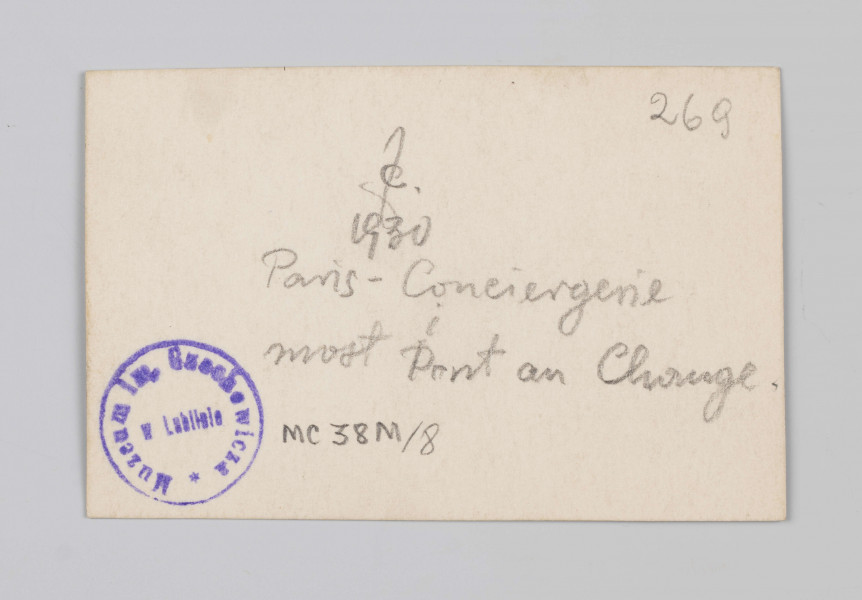 269
Jc.
1930
Paris - Conciergerie
i
most Pont au Change.
Muzeum im. Czechowicza *
w Lublinie
MC 38M/8